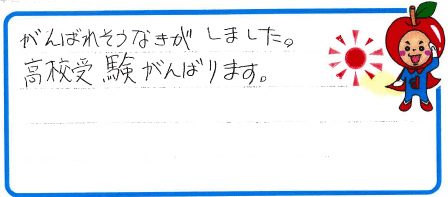 がんばれそうなきがしました。
高校受験がんばります。